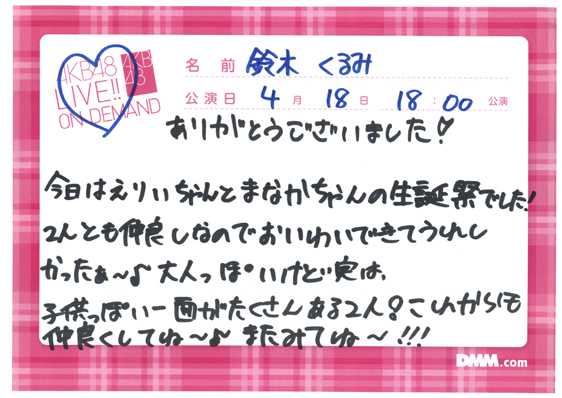 AKB48
LIVE!!
ON DEMAND
AKB
48
名前 鈴木 くるみ
公演日 4月 18日 18:00 公演
ありがとうございました!
今日はえりいちゃんとまなかちゃんの生誕祭でした!
2人とも仲良しなのでおいわいできてうれし
かったぁ〜♪ 大人っぽいけど実は、
子供っぽい一面がたくさんある2人!これからも
仲良くしてね〜♪ またみてね〜!!!
DMM.com